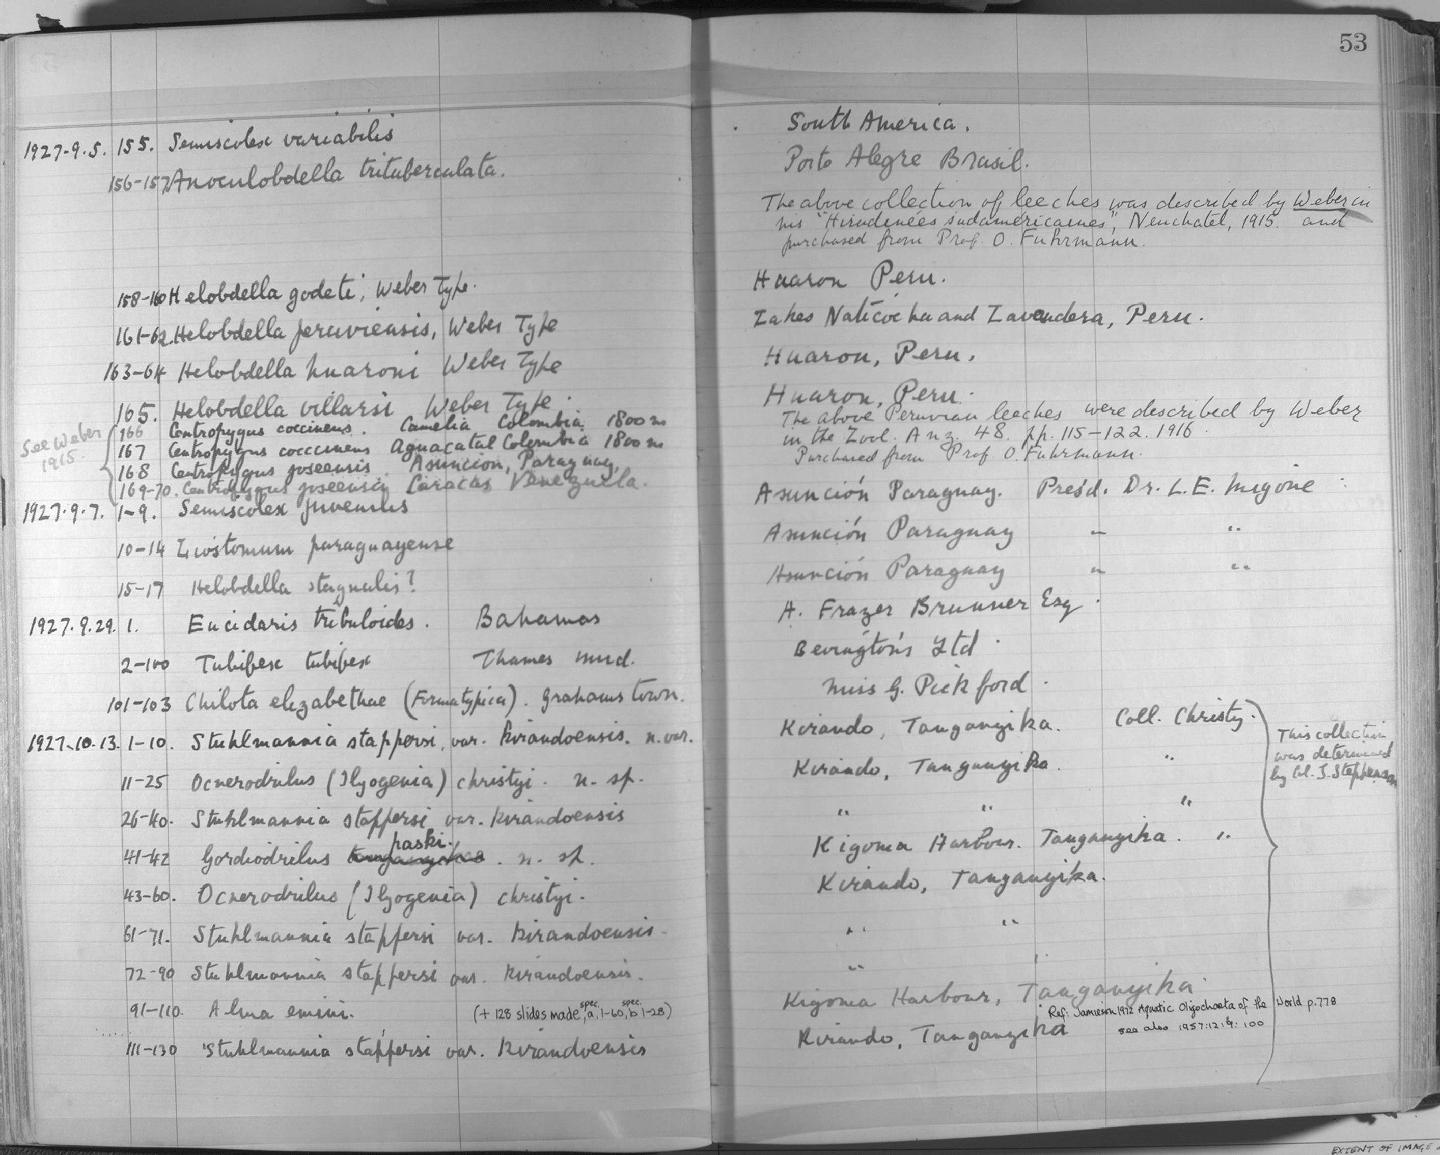 53
1927.9.5. 155. Semiscolex variabilis South America.
156-157 Anoculobdella trituberculata. Porto Alegre Brasil.
The above collection of leeches was described by Weber in
his "Hirudinées sudaméricaines", Neuchatel, 1915. and
purchased from Prof. O. Fuhrmann.
158-160 Helobdella godeti, Weber Type. Huaron Peru.
161-62. Helobdella peruviensis, Weber Type Lakes Naticocha and Lavandera, Peru.
163-64 Helobdella huaroni Weber Type Huaron, Peru.
165. Helobdella villarsi Weber Type. Huaron, Peru.
The above Peruvian leeches were described by Weber
in the Zool. Anz. 48. pp. 115-122. 1916.
Purchased from Prof O. Fuhrmann.
See Weber
1915.
166 Centropygus coccineus. Camelia Colombia. 1800 m
167 Centropygus coccineus Aguacatal Colombia 1800 m
168 Centropygus joseensis. Asuncion, Paraguay.
169-70. Centropygus joseensis Caracas Venezuela.
1927.9.7. 1-9. Semiscolex juvenilis Asunción Paraguay. Pres'd. Dr. L.E. Migone
10-14 Liostomum paraguayense Asunción Paraguay " "
15-17 Helobdella stagnalis? Asunción Paraguay " "
1927.9.29. 1. Eucidaris tribuloides. Bahamas A. Frazer Brunner Esq.
2-100 Tubifex tubifex Thames mud. Bevington's Ltd.
101-103 Chilota elizabethae (Forma typica). Grahams town. Miss G. Pickford.
1927.10.13. 1-10. Stuhlmannia stappersi, var. kirandoensis. n. var. Kirando, Tanganyika. Coll. Christy.
This collection
was determined
by Col. J. Stephenson
11-25 Ocnerodrilus (Ilyogenia) christyi. n. sp. Kirando, Tanganyika. "
26-40. Stuhlmannia stappersi var. kirandoensis " " "
paski.
41-42 Gordiodrilus tanganyikae. n. sp. Kigoma Harbour. Tanganyika. "
43-60. Ocnerodrilus (Ilyogenia) christyi. Kirando, Tanganyika.
61-71. Stuhlmannia stappersi var. kirandoensis. " "
72-90 Stuhlmannia stappersi var. kirandoensis. " "
91-110. Alma emini. (+ 128 slides made, spec. a, 1-60, spec. b 1-28) Kigoma Harbour, Tanganyika
Ref: Jamieson 1972 Aquatic Oligochaeta of the World p.778
see also 1957:12:9: 100
111-130 Stuhlmannia stappersi var. kirandoensis Kirando, Tanganyika
EXTENT OF IMAGE